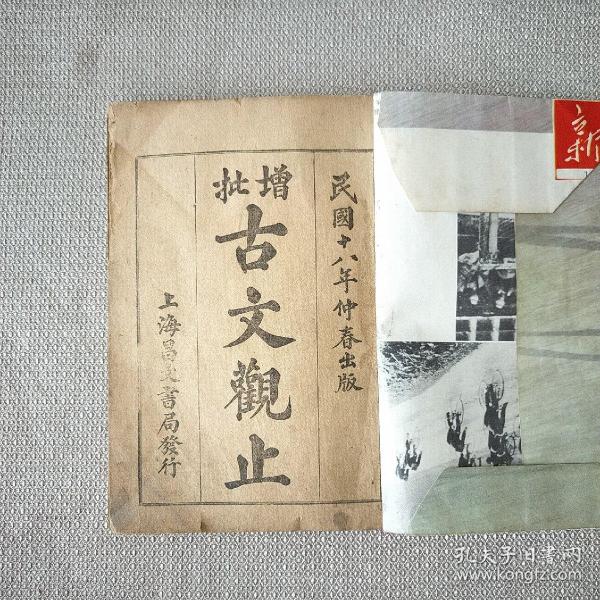 民國十八年仲春出版
增批
古文觀止
上海昌文書局發行
新
孔夫子旧書网
www.kongfz.com